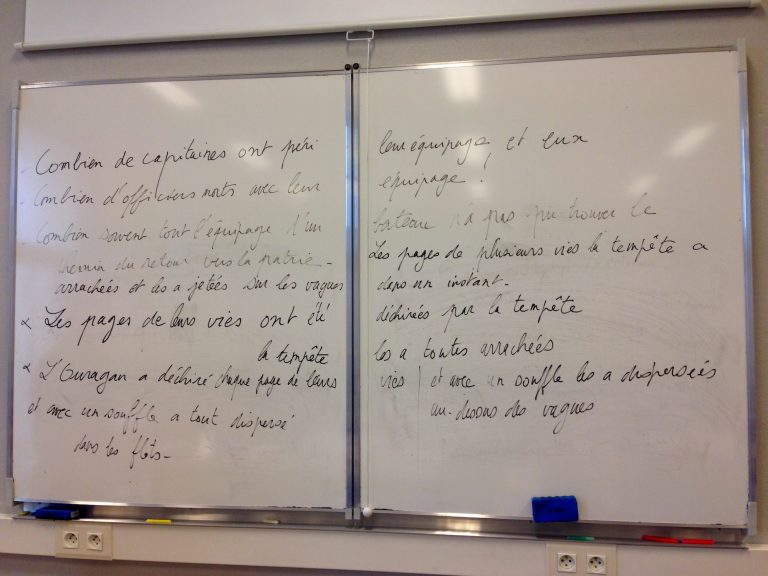 - Combien de capitaines ont péri
- Combien d'officiers morts avec leur
- Combien souvent tout l'équipage d'un
chemin du retour vers la patrie -
arrachées et les a jetées sur les vagues
α Les pages de leurs vies ont été
la tempête
α L'Ouragan a déchiré chaque page de leurs
et avec un souffle a tout dispersé
dans les flots -
leur équipage, et eux
équipage !
bateau n'a pas pu trouver le
Les pages de plusieurs vies la tempête a
dans un instant -
déchirées par la tempête
les a toutes arrachées
vies | et avec un souffle les a dispersées
au-dessus des vagues